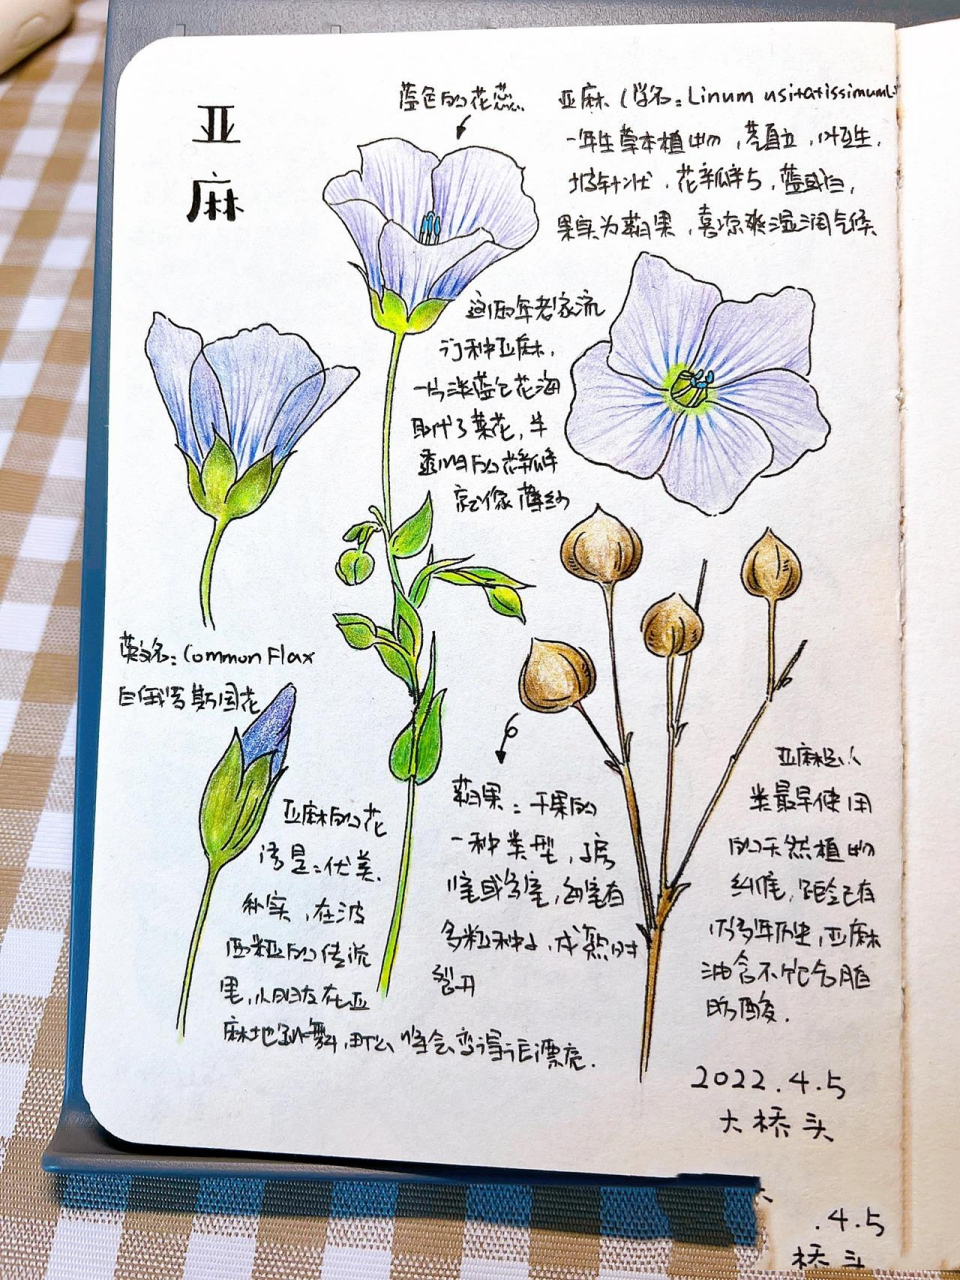 亚
麻
蓝色的花蕊
亚麻（学名：Linum usitatissimum L
一年生草本植物，茎直立，叶互生，
披针状，花瓣5，蓝或白，
果实为蒴果，喜凉爽湿润气候
这两年老家流
行种亚麻，
一片淡蓝色花海
取代了菜花，半
透明的花瓣
就像薄纱
英文名：Common Flax
白俄罗斯国花
亚麻的花
语是：优美、
朴实，在波
西米亚的传说
里，小朋友在亚
麻地跳舞，那么 将会变得后漂亮．
蒴果：干果的
一种类型，子房
室或多室，每室有
多粒种子，成熟时
裂开
亚麻是人
类最早使用
的天然植物
纤维，距今已有
1万多年历史，亚麻
油含不饱和脂
肪酸．
2022.4.5
大桥头
.4.5
桥头